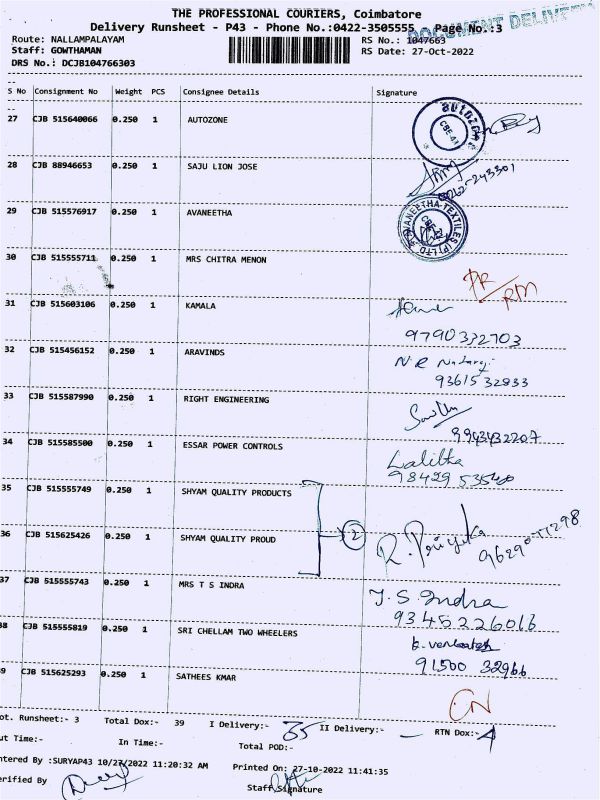 THE PROFESSIONAL COURIERS, Coimbatore
Delivery Runsheet - P43 - Phone No.:0422-3505555 - Page No.:3
DOCUMENT DELIVERY
Route: NALLAMPALAYAM RS No.: 1047663
Staff: GOWTHAMAN RS Date: 27-Oct-2022
DRS No.: DCJB104766303
S No Consignment No Weight PCS Consignee Details Signature
27 CJB 515640066 0.250 1 AUTOZONE
28 CJB 88946653 0.250 1 SAJU LION JOSE
29 CJB 515576917 0.250 1 AVANEETHA
AVANEETHA TEXTILES (P) LTD
30 CJB 515555711 0.250 1 MRS CHITRA MENON
DR/RM
31 CJB 515603106 0.250 1 KAMALA
9790332703
32 CJB 515456152 0.250 1 ARAVINDS
N.R
93615 32833
33 CJB 515587990 0.250 1 RIGHT ENGINEERING
9943432207
34 CJB 515585500 0.250 1 ESSAR POWER CONTROLS
Lalitha
35 CJB 515555749 0.250 1 SHYAM QUALITY PRODUCTS
2
36 CJB 515625426 0.250 1 SHYAM QUALITY PROUD
R. Priyaka
37 CJB 515555743 0.250 1 MRS T S INDRA
T.S. Indra
93452 26016
38 CJB 515555819 0.250 1 SRI CHELLAM TWO WHEELERS
91500 32966
9 CJB 515625293 0.250 1 SATHEES KMAR
CN
ot. Runsheet:- 3 Total Dox:- 39 I Delivery:- 35 II Delivery:- — RTN Dox:- 4
ut Time:- In Time:- Total POD:-
ntered By :SURYAP43 10/27/2022 11:20:32 AM Printed On: 27-10-2022 11:41:35
erified By Staff Signature